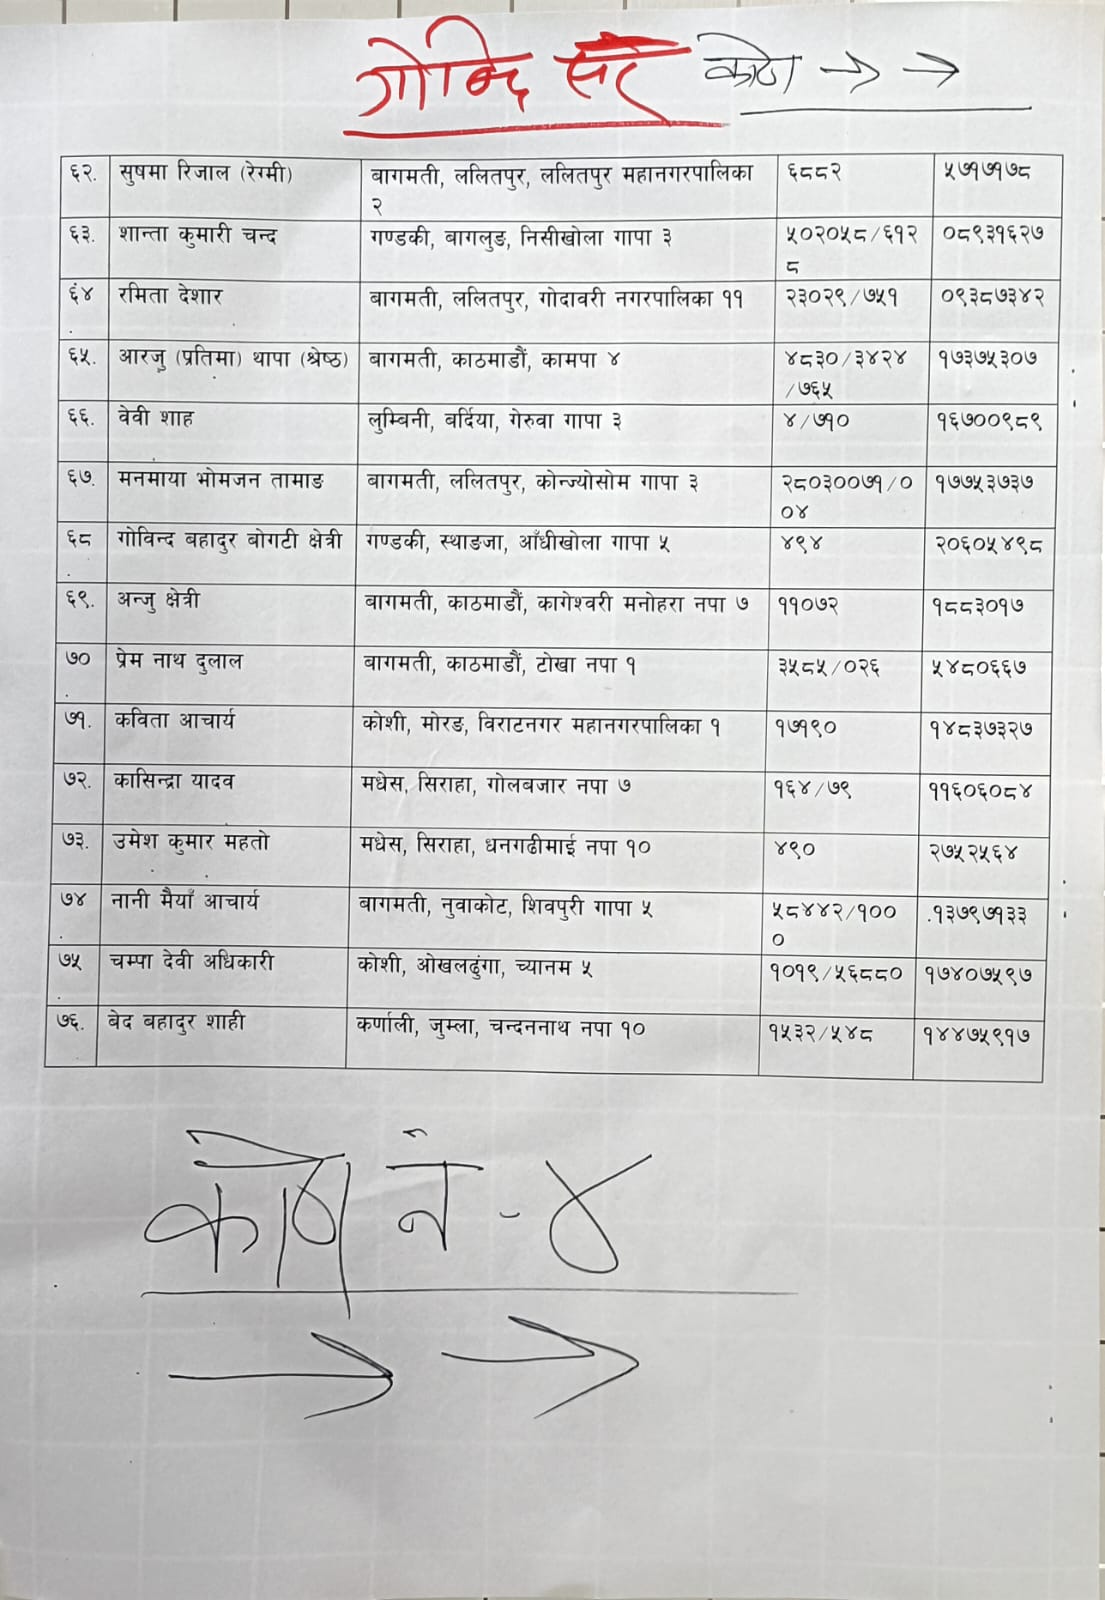 गोविन्द सर कोठा → →
६२. सुषमा रिजाल (रेग्मी) बागमती, ललितपुर, ललितपुर महानगरपालिका ६८८२ ५७१७१७८
२
६३. शान्ता कुमारी चन्द गण्डकी, बागलुङ, निसीखोला गापा ३ ५०२०५८/६१२ ०८९३१६२७
८
६४ रमिता देशार बागमती, ललितपुर, गोदावरी नगरपालिका ११ २३०२९/७५१ ०९३८७३४२
.
६५. आरजु (प्रतिमा) थापा (श्रेष्ठ) बागमती, काठमाडौं, कामपा ४ ४८३०/३४२४ १७३७५३०७
/७६५
६६. वेवी शाह लुम्बिनी, बर्दिया, गेरुवा गापा ३ ४/७१० १६७००९८९
६७. मनमाया भोमजन तामाङ बागमती, ललितपुर, कोन्ज्योसोम गापा ३ २८०३००७१/० १७७५३७३७
०४
६८ गोविन्द बहादुर बोगटी क्षेत्री गण्डकी, स्याङजा, आँधीखोला गापा ५ ४९४ २०६०५४९८
.
६९. अन्जु क्षेत्री बागमती, काठमाडौं, कागेश्वरी मनोहरा नपा ७ ११०७२ १८८३०१७
७० प्रेम नाथ दुलाल बागमती, काठमाडौं, टोखा नपा १ ३५८५/०२६ ५४८०६६७
.
७१. कविता आचार्य कोशी, मोरङ, विराटनगर महानगरपालिका १ १७१९० १४८३७३२७
७२. कासिन्द्रा यादव मधेस, सिराहा, गोलबजार नपा ७ १६४/७९ ११६०६०८४
७३. उमेश कुमार महतो मधेस, सिराहा, धनगढीमाई नपा १० ४९० २७५२५६४
७४ नानी मैयाँ आचार्य बागमती, नुवाकोट, शिवपुरी गापा ५ ५८४४२/१०० .१३७९७१३३
. ०
७५ चम्पा देवी अधिकारी कोशी, ओखलढुंगा, च्यानम ५ १०१९/५६८८० १७४०७५९७
.
७६. बेद बहादुर शाही कर्णाली, जुम्ला, चन्दननाथ नपा १० १५३२/५४८ १४४७५९१७
कोठा नं - ४
→ →